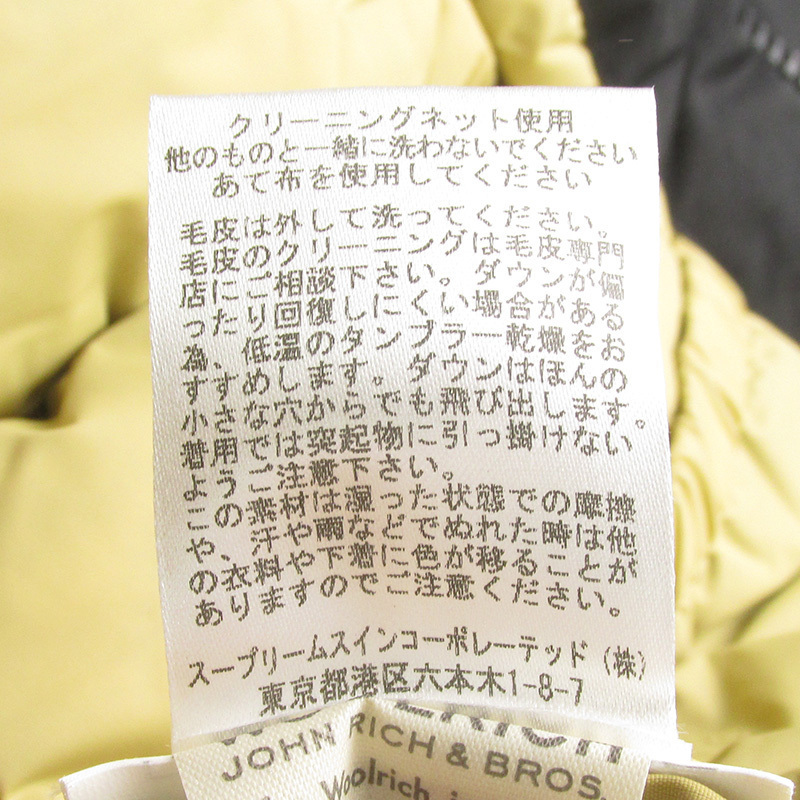 クリーニングネット使用
他のものと一緒に洗わないでください
あて布を使用してください
毛皮は外して洗ってください。
毛皮のクリーニングは毛皮専門
店にご相談下さい。ダウンが偏
ったり回復しにくい場合がある
為、低温のタンブラー乾燥をお
すすめします。ダウンはほんの
小さな穴からでも飛び出します。
着用では突起物に引っ掛けない
ようご注意下さい。
この素材は湿った状態での摩擦
や、汗や雨などでぬれた時は他
の衣料や下着に色が移ることが
ありますのでご注意ください。
スープリームスインコーポレーテッド(株)
東京都港区六本木1-8-7
JOHN RICH & BROS.
Woolrich